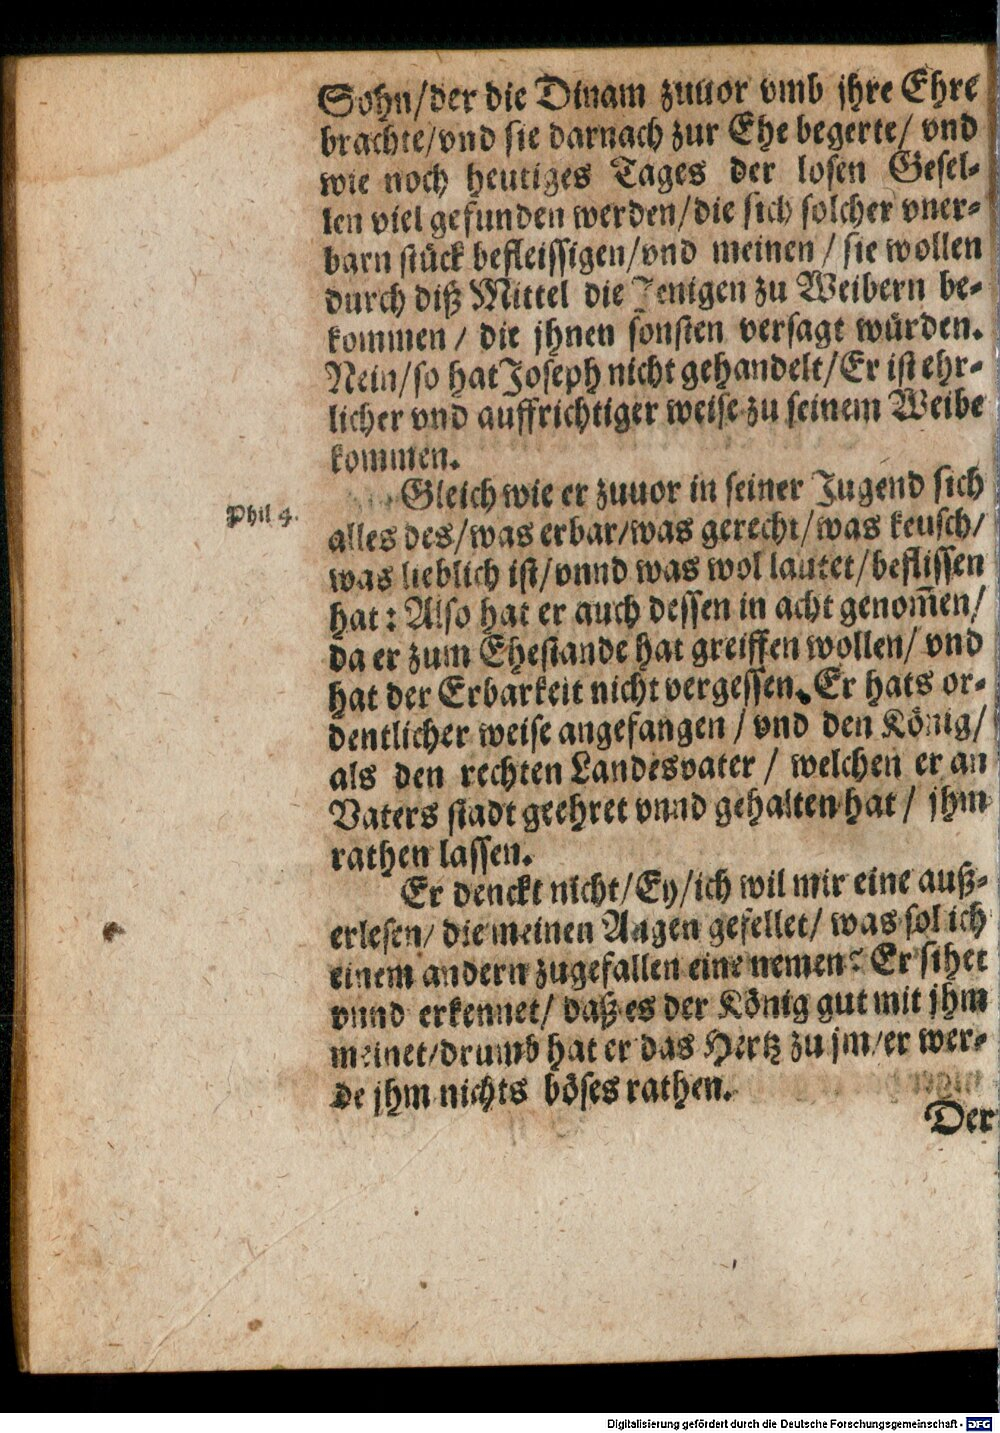 Sohn/der die Dinam zuuor vmb jhre Ehre
brachte/vnd sie darnach zur Ehe begerte/ vnd
wie noch heutiges Tages der losen Gesel-
len viel gefunden werden/die sich solcher vner-
barn stück befleissigen/vnd meinen / sie wollen
durch diß Mittel die Jenigen zu Weibern be-
kommen / die jhnen sonsten versagt würden.
Nein/so hat Joseph nicht gehandelt/Er ist ehr-
licher vnd auffrichtiger weise zu seinem Weibe
kommen.
Gleich wie er zuuor in seiner Jugend sich
Phil 4.
alles des/was erbar/was gerecht/was keusch/
was lieblich ist/vnnd was wol lautet/beflissen
hat: Also hat er auch dessen in acht genom̃en/
da er zum Ehestande hat greiffen wollen/ vnd
hat der Erbarkeit nicht vergessen. Er hats or-
dentlicher weise angefangen / vnd den König/
als den rechten Landesvater / welchen er an
Vaters stadt geehret vnnd gehalten hat / jhm
rathen lassen.
Er denckt nicht/Ey/ich wil mir eine auß-
erlesen/ die meinen Augen gefellet/ was sol ich
einem andern zugefallen eine nemen? Er sihet
vnnd erkennet/ daß es der König gut mit jhm
meinet/drumb hat er das Hertz zu jm/er wer-
de jhm nichts böses rathen.
Der
Digitalisierung gefördert durch die Deutsche Forschungsgemeinschaft - DFG